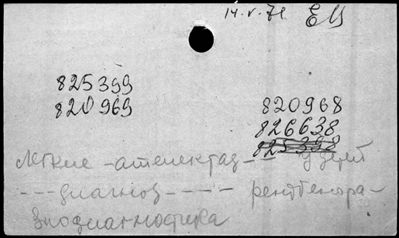 14.V.71 ЕМ
825399
820969 820968
826638
825398
Легкие - ателектаз - у детей
--- диагноз ---- рентгено
диагностика